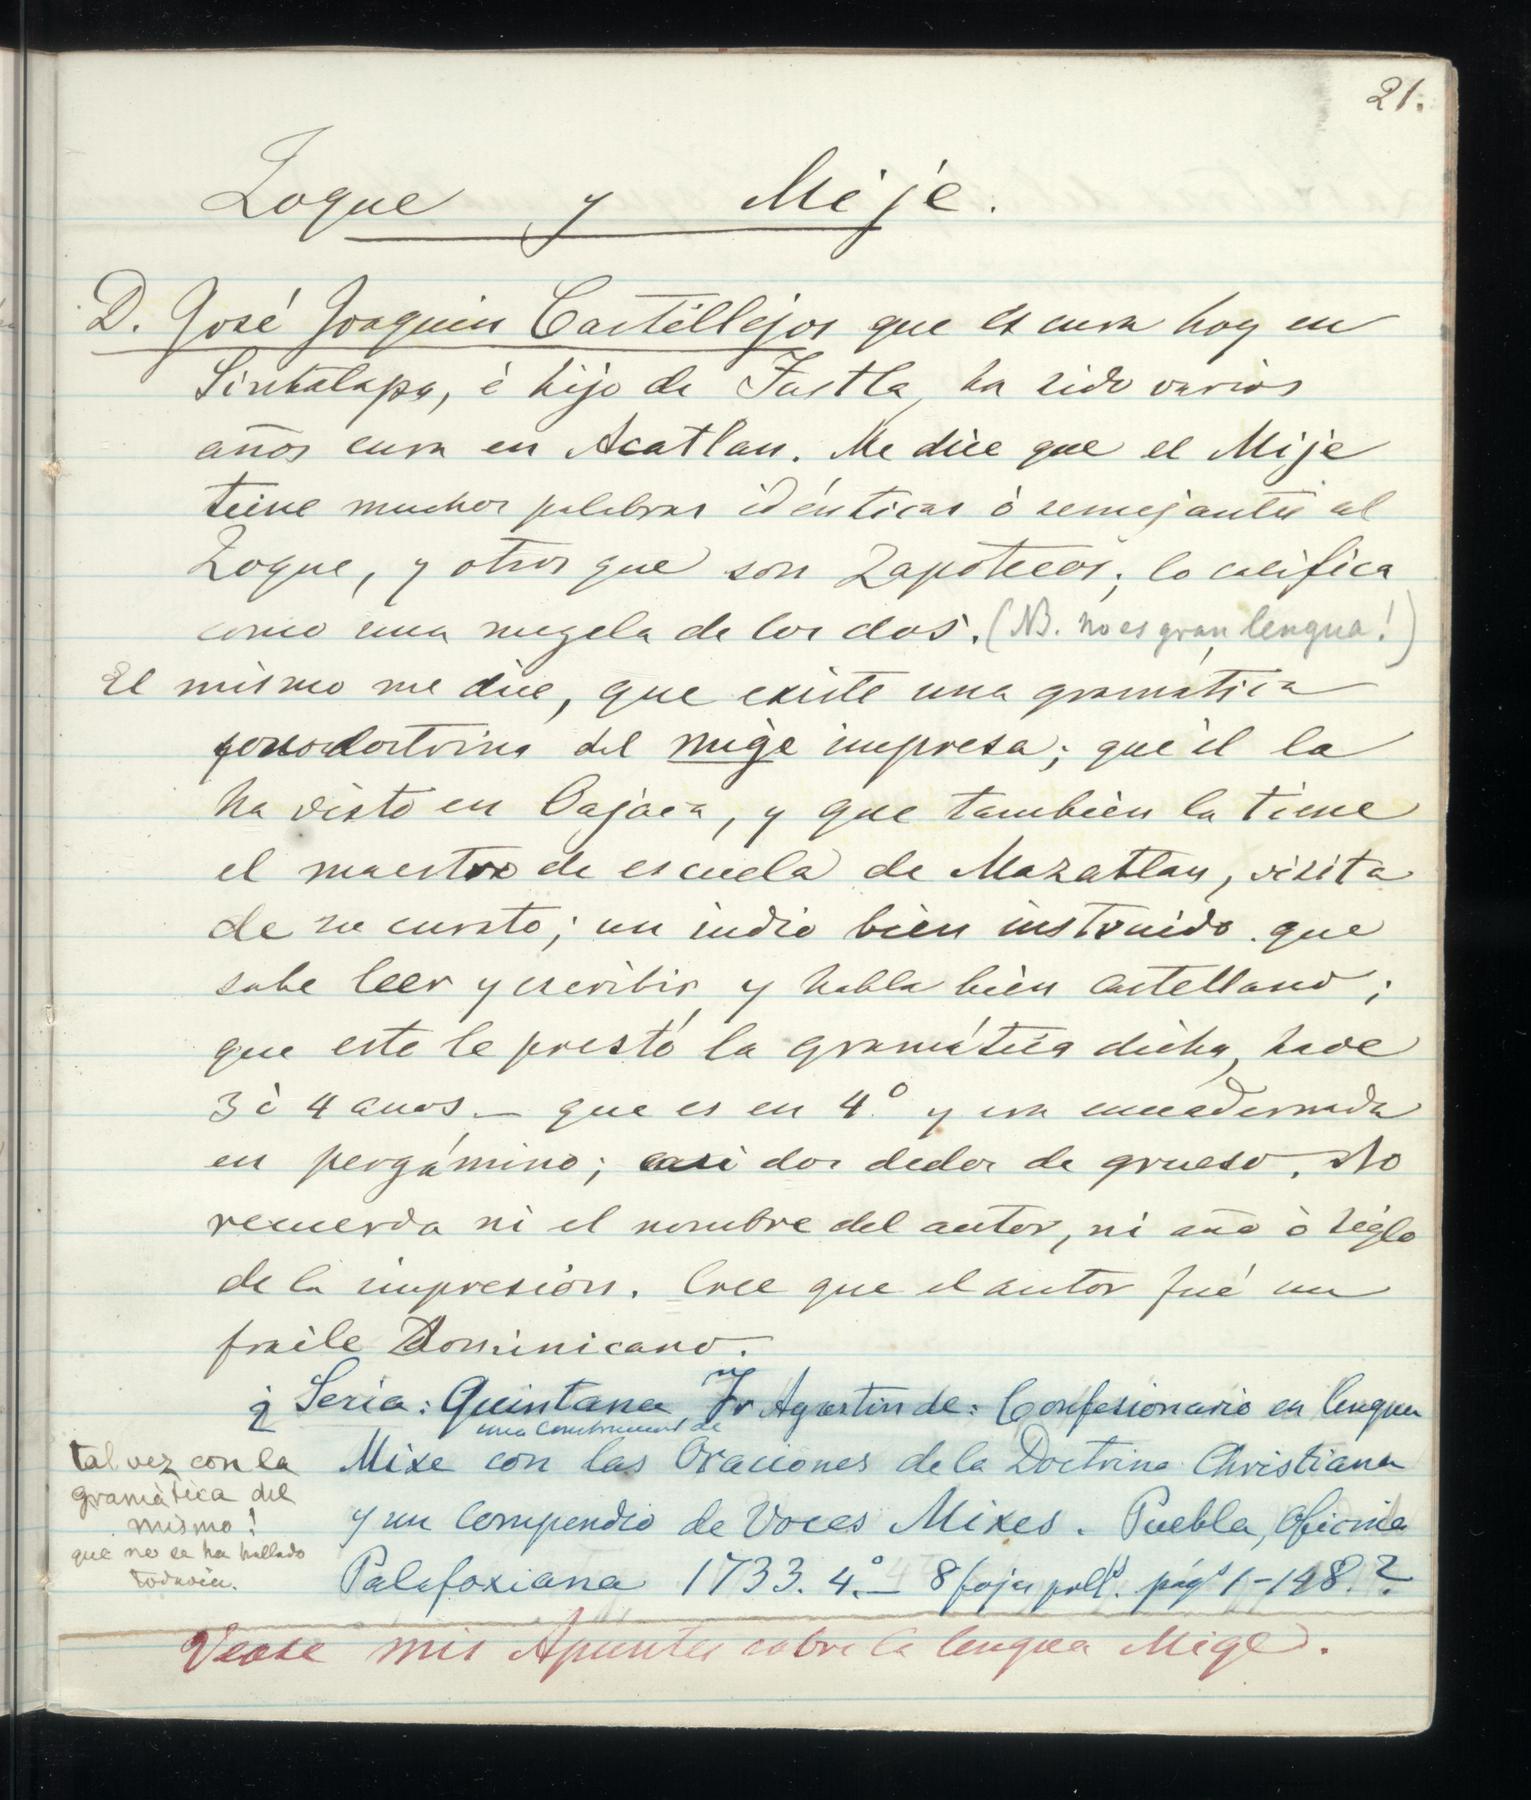 21.
Zoque y Mije.
D. José Joaquin Castillejos que es cura hoy en
Sintalapa, é hijo de Tustla, ha sido varios
años cura en Acatlan. Me dice que el Mije
tiene muchos palabras idénticas ó semejantes al
Zoque, y otros que son Zapotecos; lo califica
como una mezcla de los dos. (NB. no es gran lengua!)
El mismo me dice, que existe una gramática
doctrina del mige impresa; que él la
ha visto en Oajaca, y que también la tiene
el maestro de escuela de Mazatlan, visita
de su curato; un indio bien instruido que
sabe leer y escribir, y habla bien castellano;
que este le prestó la gramática dicha, hace
3 ó 4 anos — que es en 4.º y era encuadernada
en pergámino; casi dos dedos de grueso. No
recuerda ni el nombre del autor, ni año ó siglo
de la impresión. Cree que el autor fué un
fraile Dominicano.
¿ Seria: Quintana Fr Agustin de: Confesionario en lengua
Mixe con las Oraciones de la Doctrina Christiana
una Construccion de
y un Compendio de Voces Mixes. Puebla, Oficina
Palafoxiana 1733. 4.º — 8 fojas prels. págs 1-148.?
tal vez con la
gramàtica del
mismo!
que no se ha hallado
todavia.
Vease mis Apuntes sobre la lengua Mige.